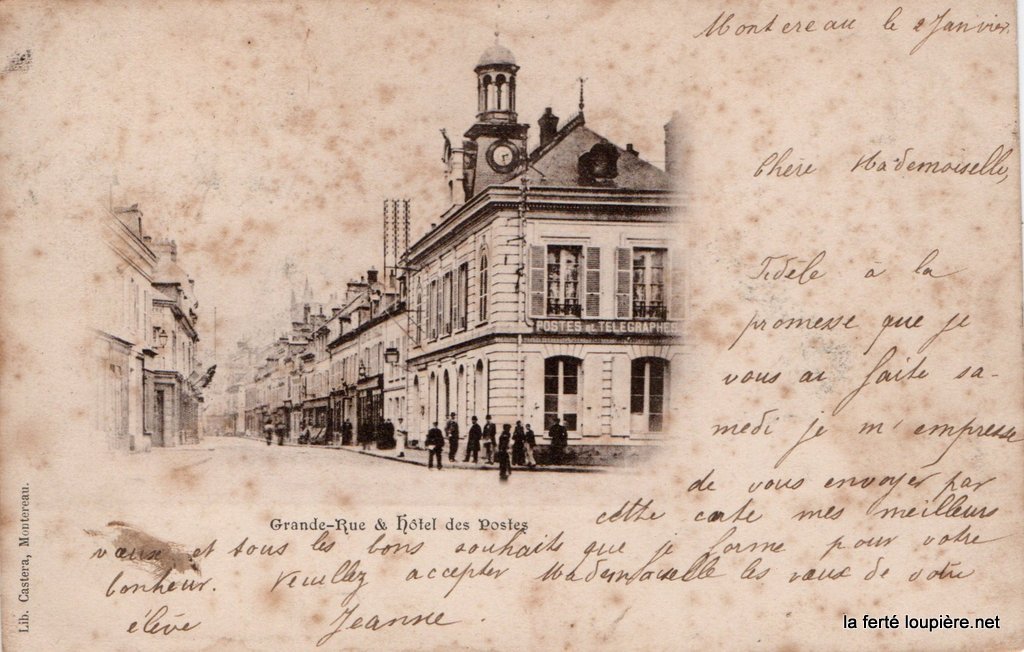 Montereau le 2 Janvier.
Chère Mademoiselle,
Fidèle à la
promesse que je
vous ai faite sa-
medi je m'empresse
de vous envoyer par
cette carte mes meilleurs
vœux et tous les bons souhaits que je forme pour votre
bonheur. Veuillez accepter Mademoiselle les vœux de votre
élève Jeanne.
POSTES ET TELEGRAPHES
Grande-Rue & Hôtel des Postes
Lib. Castera, Montereau.
la ferté loupière.net